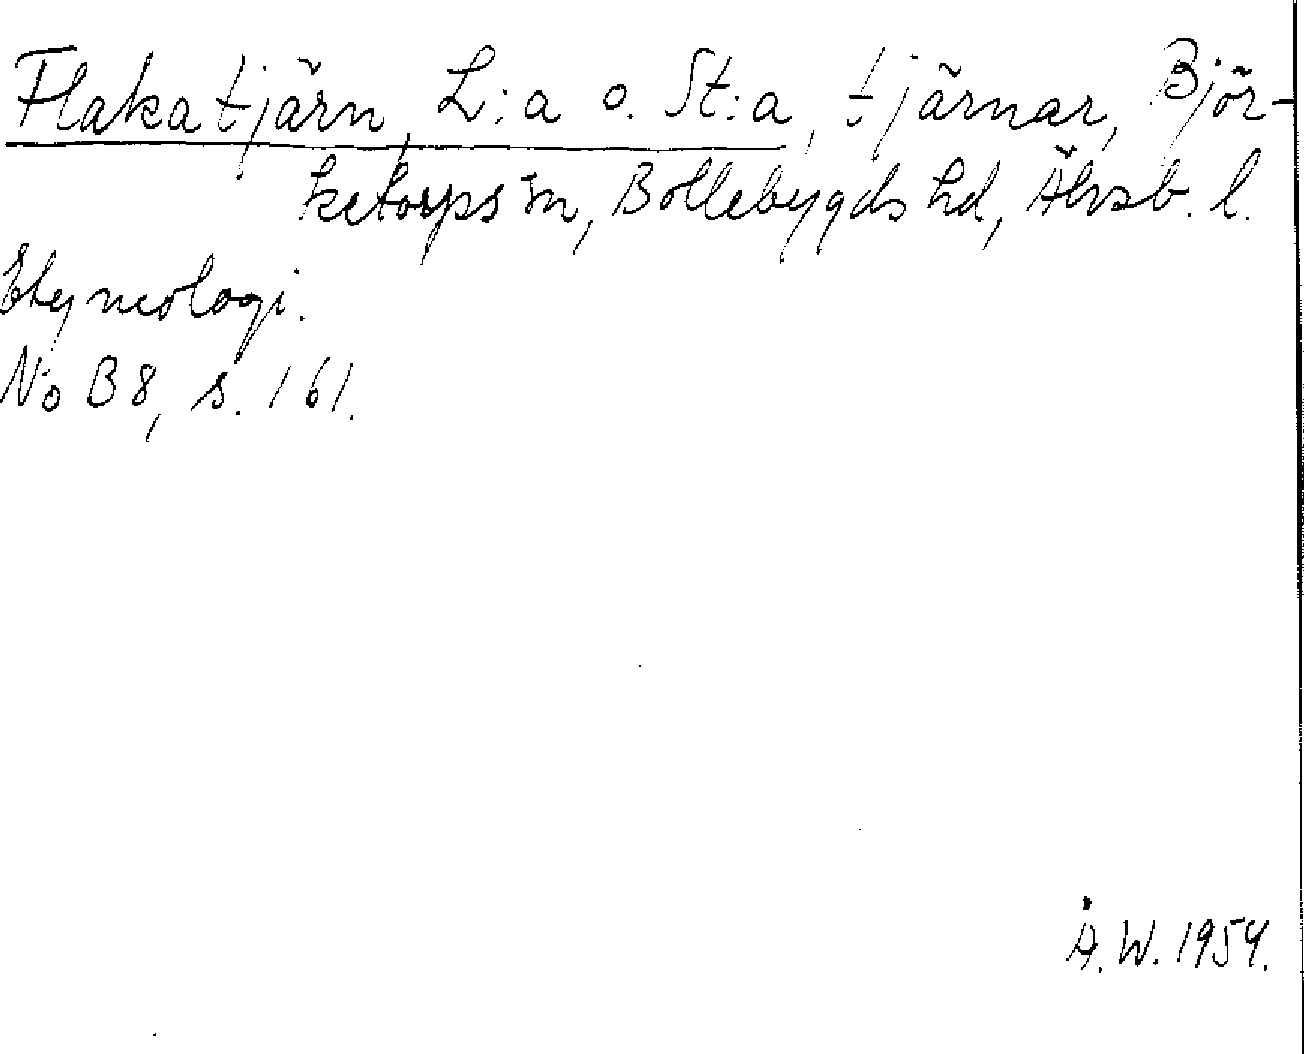 Flakatjärn, L:a o. St:a, tjärnar, Björ-
ketorps sn, Bollebygds hd, Älvsb. l.
Etymologi.
NoB 8, s. 161.
Å.W. 1954.